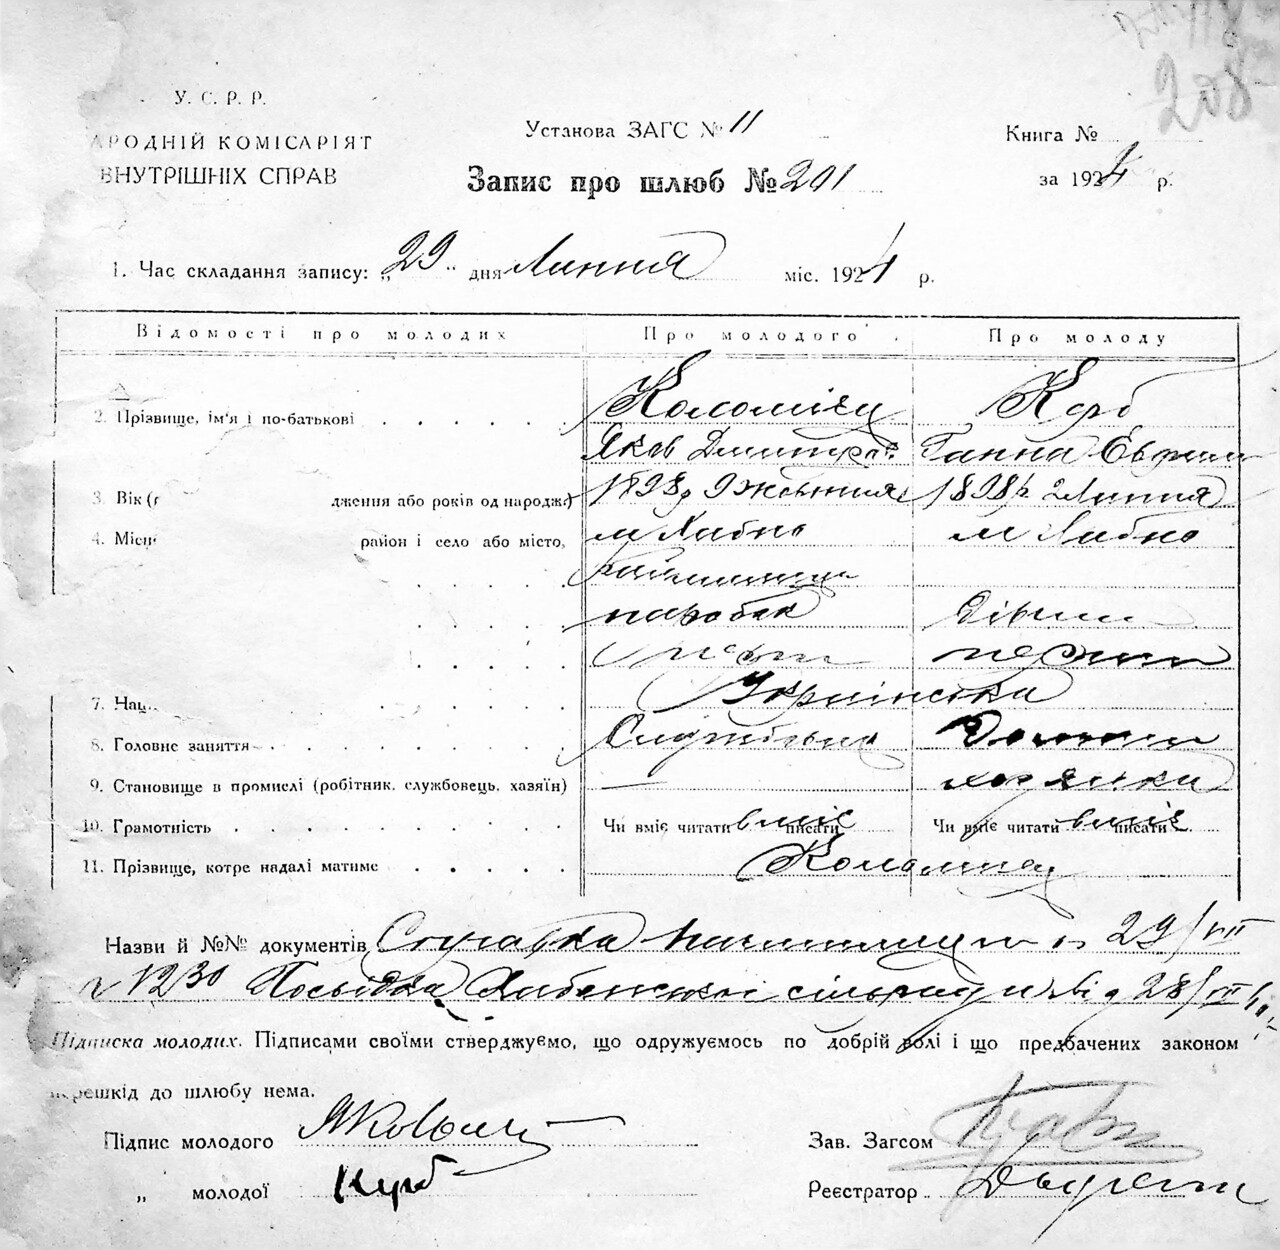 208
У. С. Р. Р.
АРОДНІЙ КОМІСАРІЯТ
ВНУТРІШНІХ СПРАВ
Установа ЗАГС № 11
Книга №
Запис про шлюб № 201
за 1924 р.
1. Час складання запису: „29" дня Липня міс. 1924 р.
Відомості про молодих Про молодого Про молоду
2. Прізвище, ім'я і по-батькові Коломієц Корб
Яков Дмитров. Ганна Ефрем
3. Вік ( дження або років од народж.) 1898р 9 жовтня 1898р 2 Липня
4. Місц район і село або місто, м Хабно м Хабно
паробок Дівиця
первий
7. Нац Українська
8. Головне заняття Домашн
9. Становище в промислі (робітник, службовець, хазяїн) — хозяйка
10. Грамотність Чи вміє читати вміє писати Чи вміє читати вміє писати
11. Прізвище, котре надалі матиме Коломиец
Назви й №№ документів 29/VII
№ 230 Посвідка Хабенської сільради від 28/VII
Підписка молодих. Підписами своїми стверджуємо, що одружуємось по добрій волі і що предбачених законом
перешкід до шлюбу нема.
Підпис молодого
Зав. Загсом
„ молодої Курб
Реєстратор